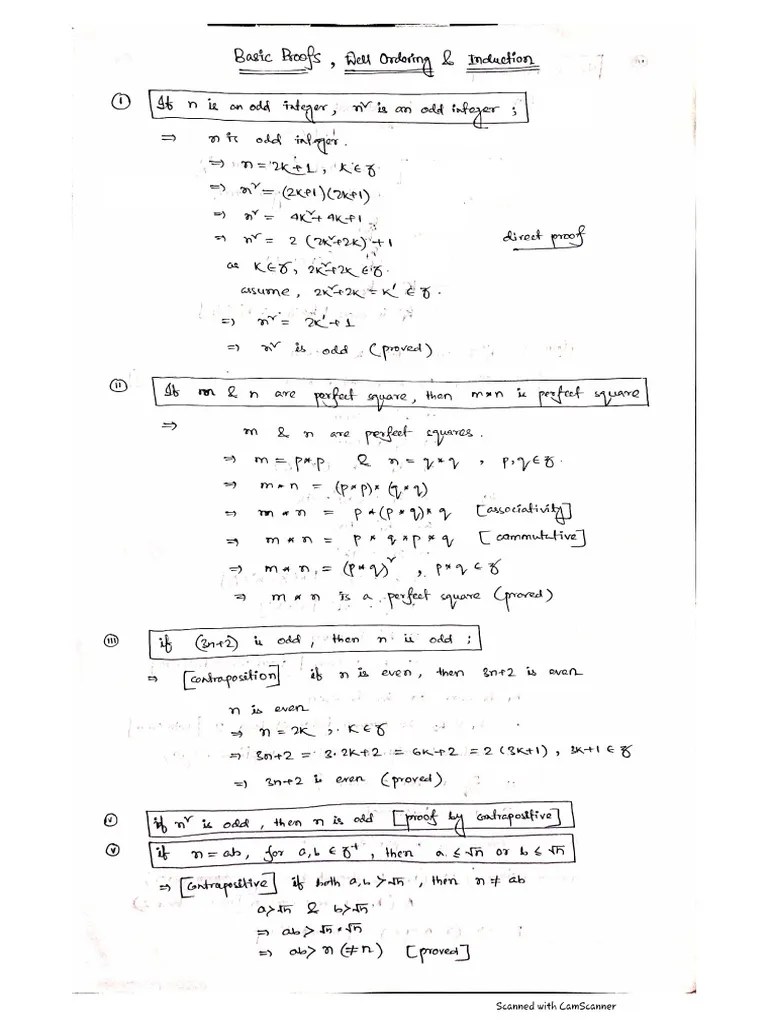 Basic Proofs, Well Ordering & Induction
(i) If n is an odd integer, n² is an odd integer ;
⇒ n is odd integer.
⇒ n = 2k+1, k ∈ ℤ
⇒ n² = (2k+1)(2k+1)
⇒ n² = 4k²+4k+1
⇒ n² = 2 (2k²+2k) +1
direct proof
as k∈ℤ, 2k²+2k ∈ ℤ.
assume, 2k²+2k = k' ∈ ℤ.
⇒ n² = 2k'+1
⇒ n² is odd (proved)
(ii) If m & n are perfect square, then m*n is perfect square
⇒ m & n are perfect squares.
⇒ m = p*p & n = q*q , p,q ∈ ℤ.
⇒ m*n = (p*p)*(q*q)
⇒ m*n = p*(p*q)*q [associativity]
⇒ m*n = p*q*p*q [commutative]
⇒ m*n = (p*q)² , p*q ∈ ℤ
⇒ m*n is a perfect square (proved)
(iii) if (3n+2) is odd, then n is odd ;
⇒ [contraposition] if n is even, then 3n+2 is even
n is even
⇒ n = 2k , k∈ℤ
⇒ 3n+2 = 3·2k+2 = 6k+2 = 2(3k+1), 3k+1 ∈ ℤ
⇒ 3n+2 is even (proved)
(v) if n² is odd, then n is odd [proof by contrapositive]
(v) if n=ab, for a,b ∈ ℤ⁺, then a ≤ √n or b ≤ √n
⇒ [contrapositive] if both a,b > √n, then n ≠ ab
a>√n & b>√n
⇒ ab > √n * √n
⇒ ab > n (≠n) [proved]
Scanned with CamScanner